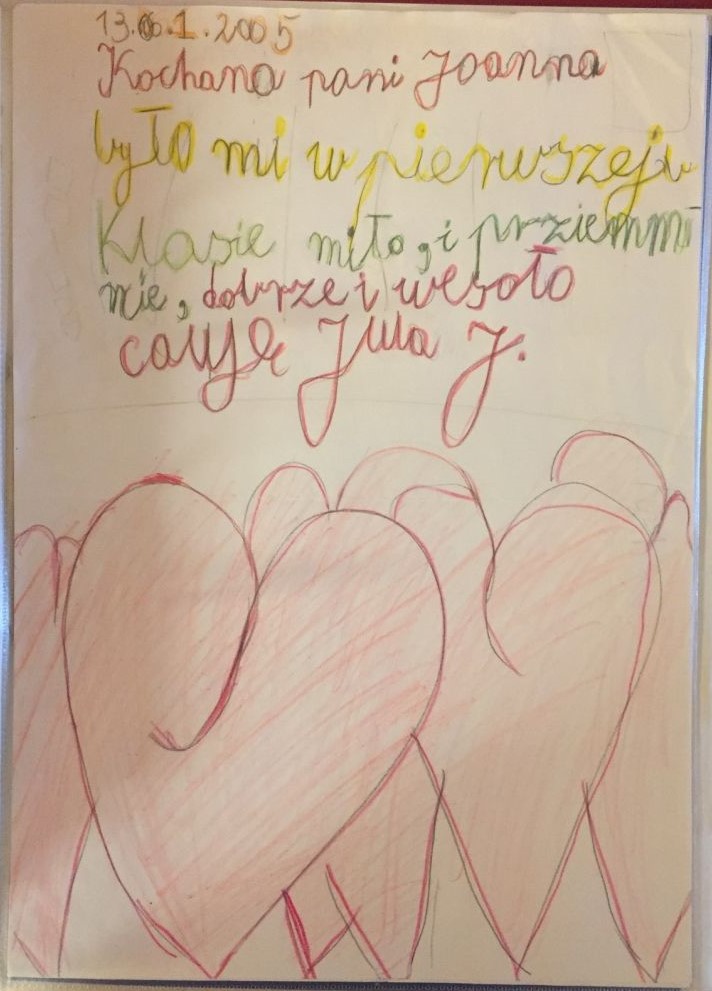 13.06.1.2005
Kochana pani Joanna
było mi w pierwszej
klasie miło, i prziemmi
nie, dobrze i wesoło
całuję Julia J.